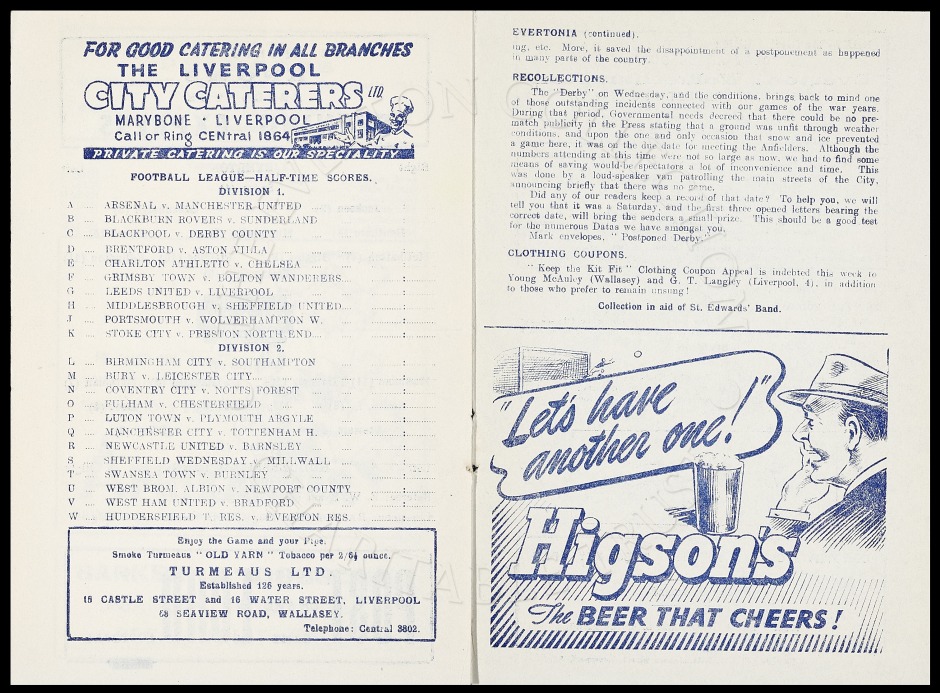 FOR GOOD CATERING IN ALL BRANCHES
THE LIVERPOOL
CITY CATERERS LTD.
MARYBONE · LIVERPOOL
Call or Ring CENtral 1864
PRIVATE CATERING IS OUR SPECIALITY
FOOTBALL LEAGUE—HALF-TIME SCORES.
DIVISION 1.
A .... ARSENAL v. MANCHESTER UNITED
B .... BLACKBURN ROVERS v. SUNDERLAND
C .... BLACKPOOL v. DERBY COUNTY
D .... BRENTFORD v. ASTON VILLA
E .... CHARLTON ATHLETIC v. CHELSEA
F .... GRIMSBY TOWN v. BOLTON WANDERERS
G .... LEEDS UNITED v. LIVERPOOL
H .... MIDDLESBROUGH v. SHEFFIELD UNITED
J .... PORTSMOUTH v. WOLVERHAMPTON W.
K .... STOKE CITY v. PRESTON NORTH END
DIVISION 2.
L .... BIRMINGHAM CITY v. SOUTHAMPTON
M .... BURY v. LEICESTER CITY
N .... COVENTRY CITY v. NOTTS FOREST
O .... FULHAM v. CHESTERFIELD
P .... LUTON TOWN v. PLYMOUTH ARGYLE
Q .... MANCHESTER CITY v. TOTTENHAM H.
R .... NEWCASTLE UNITED v. BARNSLEY
S .... SHEFFIELD WEDNESDAY v. MILLWALL
T .... SWANSEA TOWN v. BURNLEY
U .... WEST BROM. ALBION v. NEWPORT COUNTY
V .... WEST HAM UNITED v. BRADFORD
W .... HUDDERSFIELD T. RES. v. EVERTON RES.
Enjoy the Game and your Pipe.
Smoke Turmeaus "OLD YARN" Tobacco per 2/6½ ounce.
TURMEAUS LTD.
Established 126 years.
15 CASTLE STREET and 16 WATER STREET, LIVERPOOL
68 SEAVIEW ROAD, WALLASEY.
Telephone: Central 3802.
EVERTONIA (continued).
ing, etc. More, it saved the disappointment of a postponement as happened
in many parts of the country.
RECOLLECTIONS.
The "Derby" on Wednesday, and the conditions, brings back to mind one
of those outstanding incidents connected with our games of the war years.
During that period, Governmental needs decreed that there could be no pre-
match publicity in the Press stating that a ground was unfit through weather
conditions, and upon the one and only occasion that snow and ice prevented
a game here, it was on the due date for meeting the Anfielders. Although the
numbers attending at this time were not so large as now, we had to find some
means of saving would-be spectators a lot of inconvenience and time. This
was done by a loud-speaker van patrolling the main streets of the City,
announcing briefly that there was no game.
Did any of our readers keep a record of that date? To help you, we will
tell you that it was a Saturday, and the first three opened letters bearing the
correct date, will bring the senders a small prize. This should be a good test
for the numerous Datas we have amongst you.
Mark envelopes, "Postponed Derby."
CLOTHING COUPONS.
"Keep the Kit Fit" Clothing Coupon Appeal is indebted this week to
Young McAuley (Wallasey) and G. T. Langley (Liverpool, 4), in addition
to those who prefer to remain unsung!
Collection in aid of St. Edwards' Band.
"Let's have
another one!"
Higson's
The BEER THAT CHEERS!